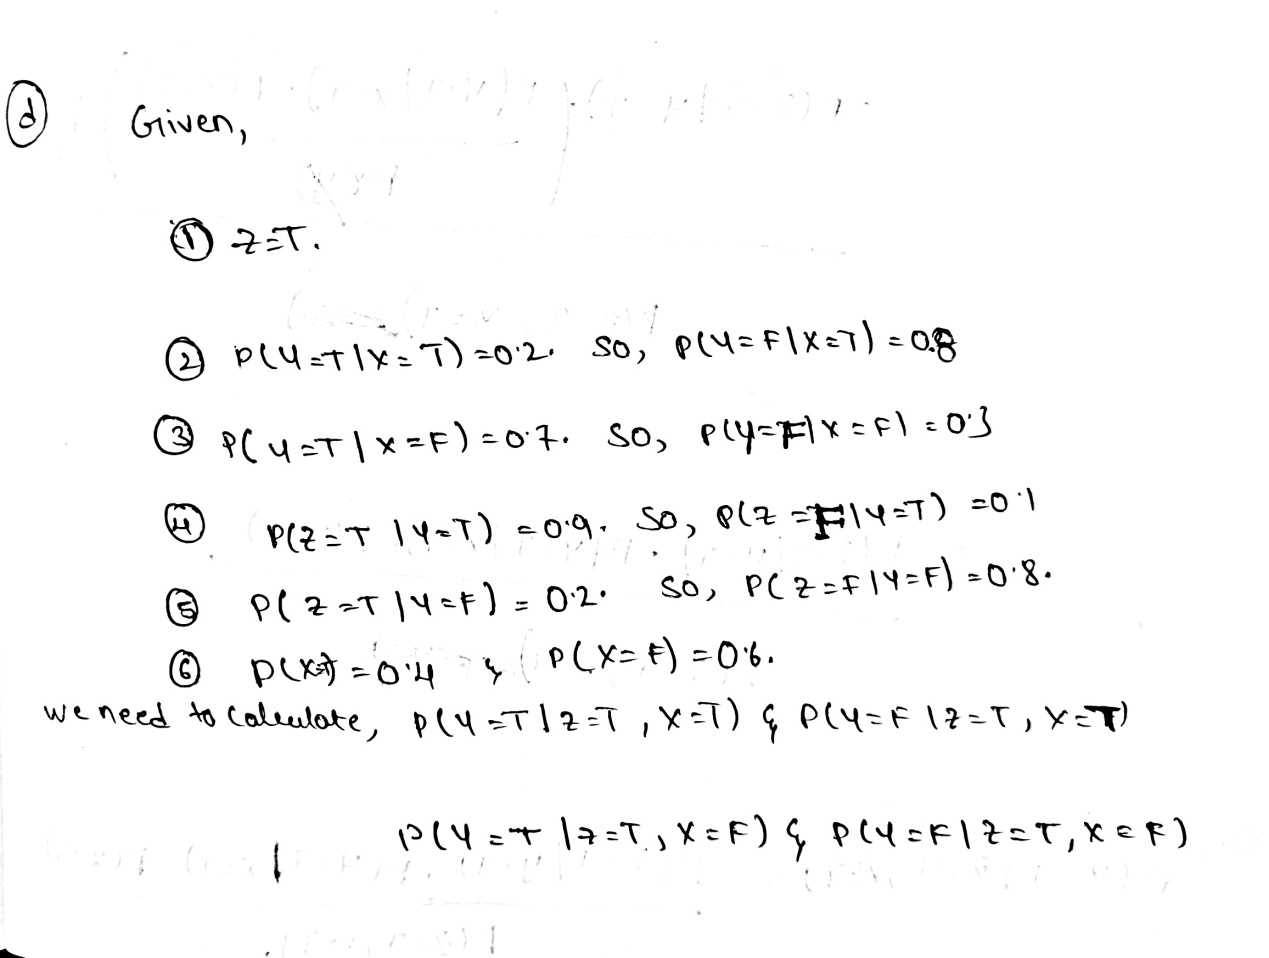 d Given,
① Z=T.
② P(Y=T|X=T)=0.2. So, P(Y=F|X=T)=0.8
③ P(Y=T|X=F)=0.7. So, P(Y=F|X=F)=0.3
④ P(Z=T|Y=T)=0.9. So, P(Z=F|Y=T)=0.1
⑤ P(Z=T|Y=F)=0.2. So, P(Z=F|Y=F)=0.8.
⑥ P(X=T)=0.4 & P(X=F)=0.6.
we need to calculate, P(Y=T|Z=T, X=T) & P(Y=F|Z=T, X=T)
P(Y=T|Z=T, X=F) & P(Y=F|Z=T, X=F)